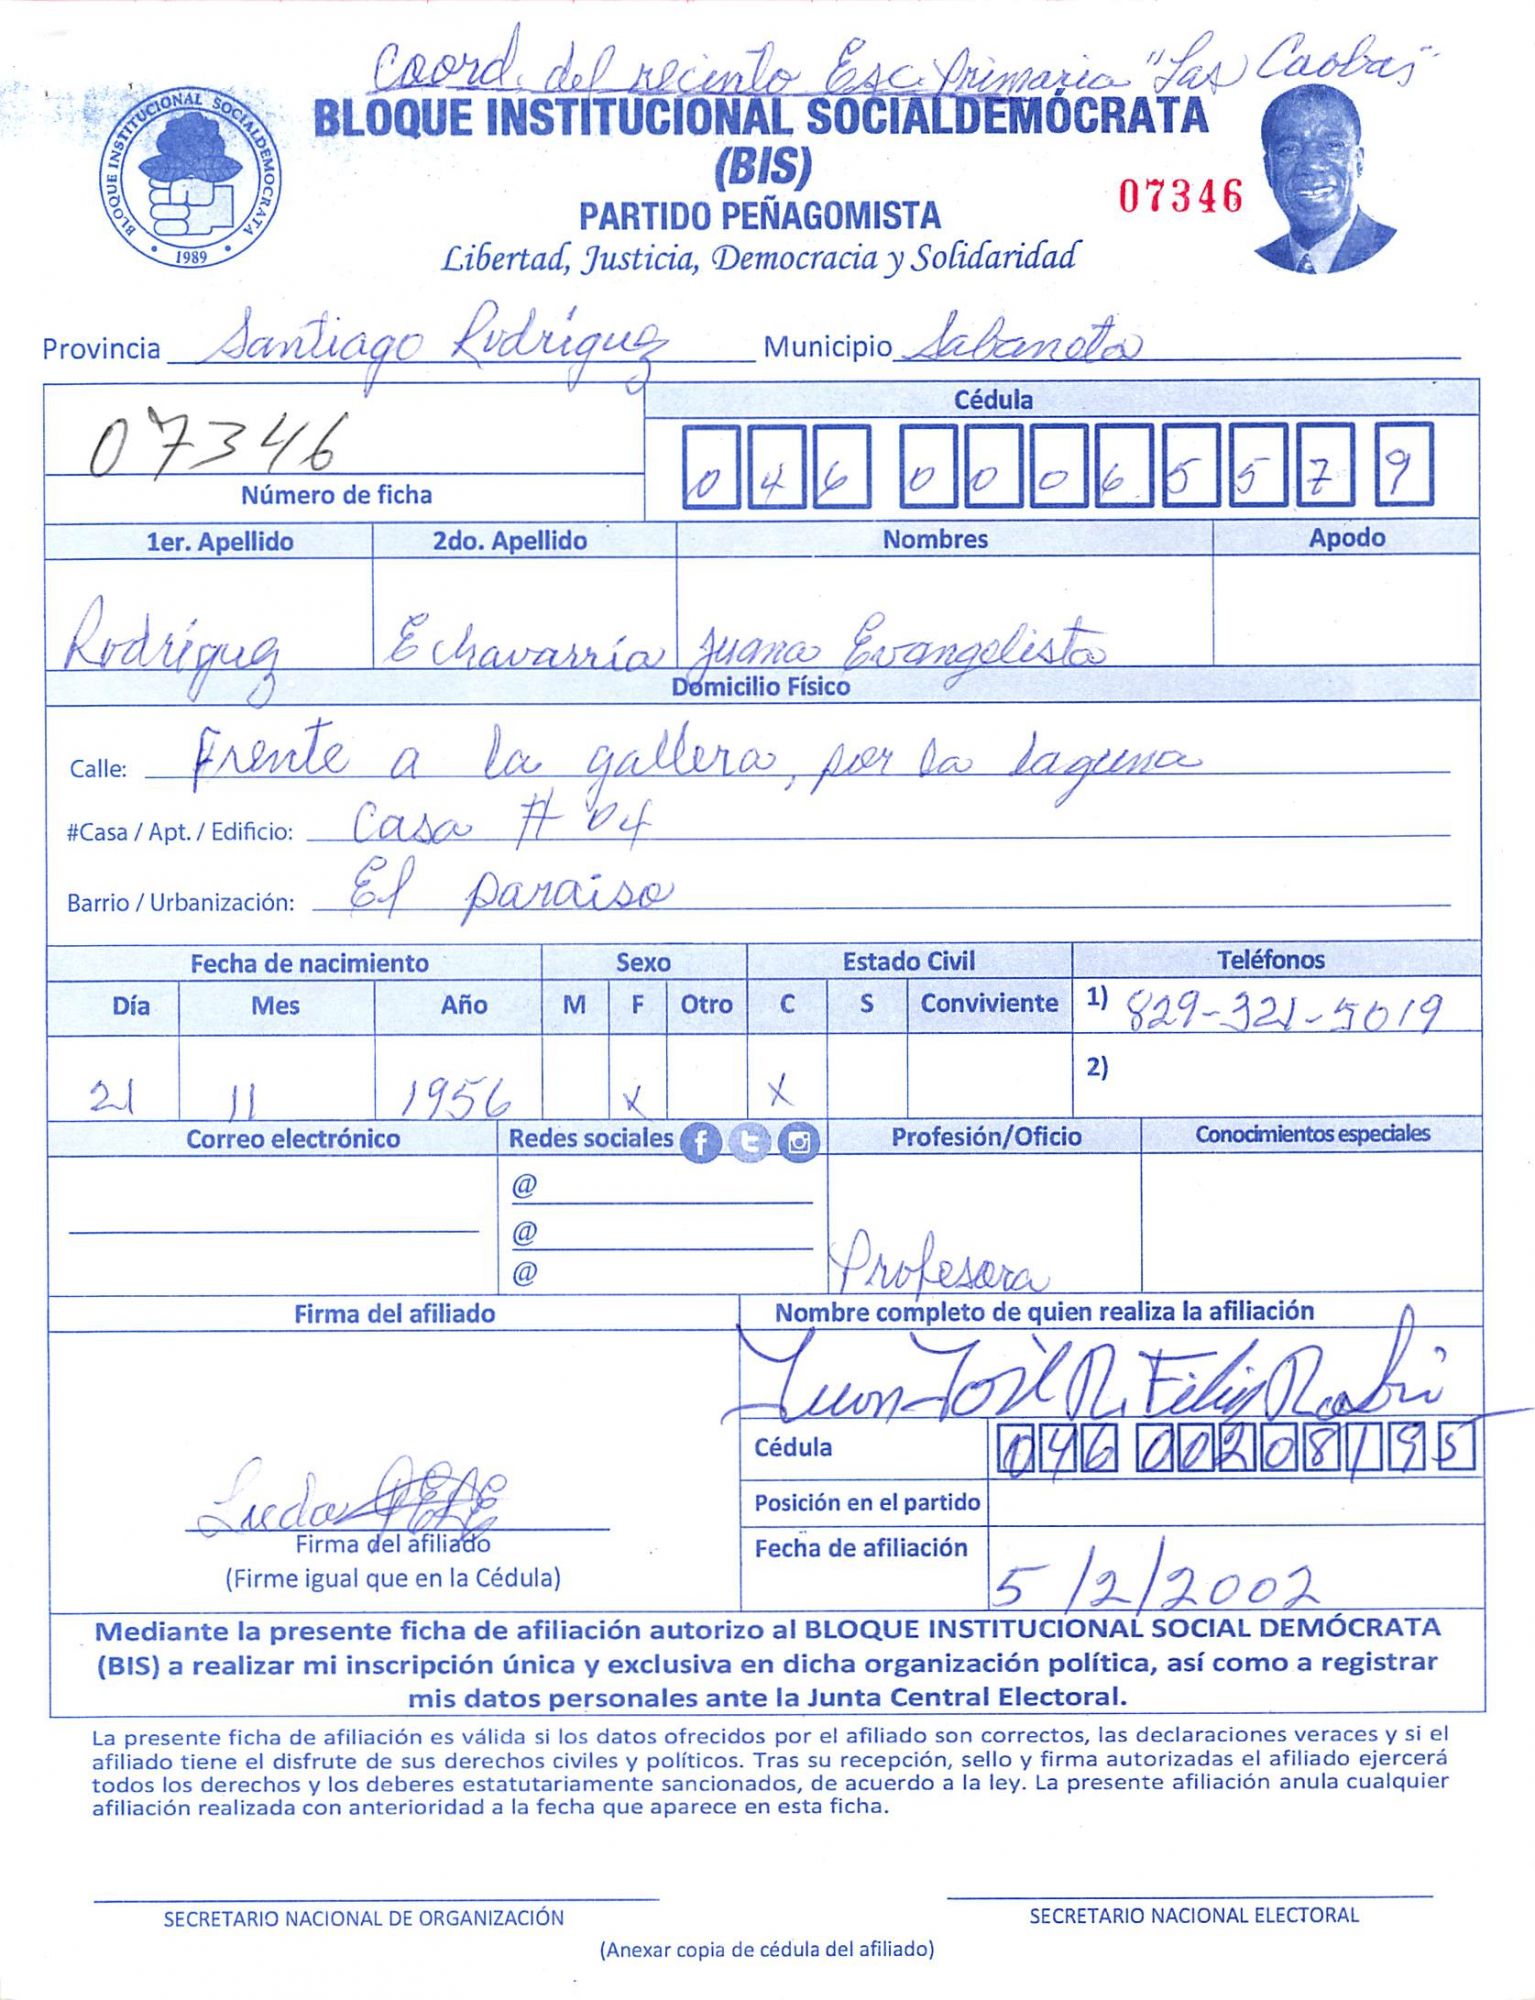 Coord. del recinto Esc. Primaria "Las Caobas"
BLOQUE INSTITUCIONAL SOCIALDEMOCRATA
1989
BLOQUE INSTITUCIONAL SOCIALDEMÓCRATA
(BIS)
PARTIDO PEÑAGOMISTA
07346
Libertad, Justicia, Democracia y Solidaridad
Provincia Santiago Rodríguez Municipio Sabaneta
07346
Número de ficha
Cédula
046 0006557 9
1er. Apellido 2do. Apellido Nombres Apodo
Rodríguez Echavarría Juana Evangelista
Domicilio Físico
Calle: Frente a la gallera, por la laguna
#Casa / Apt. / Edificio: Casa # 04
Barrio / Urbanización: El paraiso
Fecha de nacimiento Sexo Estado Civil Teléfonos
Día Mes Año M F Otro C S Conviviente 1) 829-321-5019
21 11 1956 x x 2)
Correo electrónico Redes sociales Profesión/Oficio Conocimientos especiales
@
@
@
Profesora
Firma del afiliado Nombre completo de quien realiza la afiliación
Cédula 046 0020819 5
Posición en el partido
Firma del afiliado
Fecha de afiliación 5/2/2002
(Firme igual que en la Cédula)
Mediante la presente ficha de afiliación autorizo al BLOQUE INSTITUCIONAL SOCIAL DEMÓCRATA
(BIS) a realizar mi inscripción única y exclusiva en dicha organización política, así como a registrar
mis datos personales ante la Junta Central Electoral.
La presente ficha de afiliación es válida si los datos ofrecidos por el afiliado son correctos, las declaraciones veraces y si el
afiliado tiene el disfrute de sus derechos civiles y políticos. Tras su recepción, sello y firma autorizadas el afiliado ejercerá
todos los derechos y los deberes estatutariamente sancionados, de acuerdo a la ley. La presente afiliación anula cualquier
afiliación realizada con anterioridad a la fecha que aparece en esta ficha.
SECRETARIO NACIONAL DE ORGANIZACIÓN SECRETARIO NACIONAL ELECTORAL
(Anexar copia de cédula del afiliado)